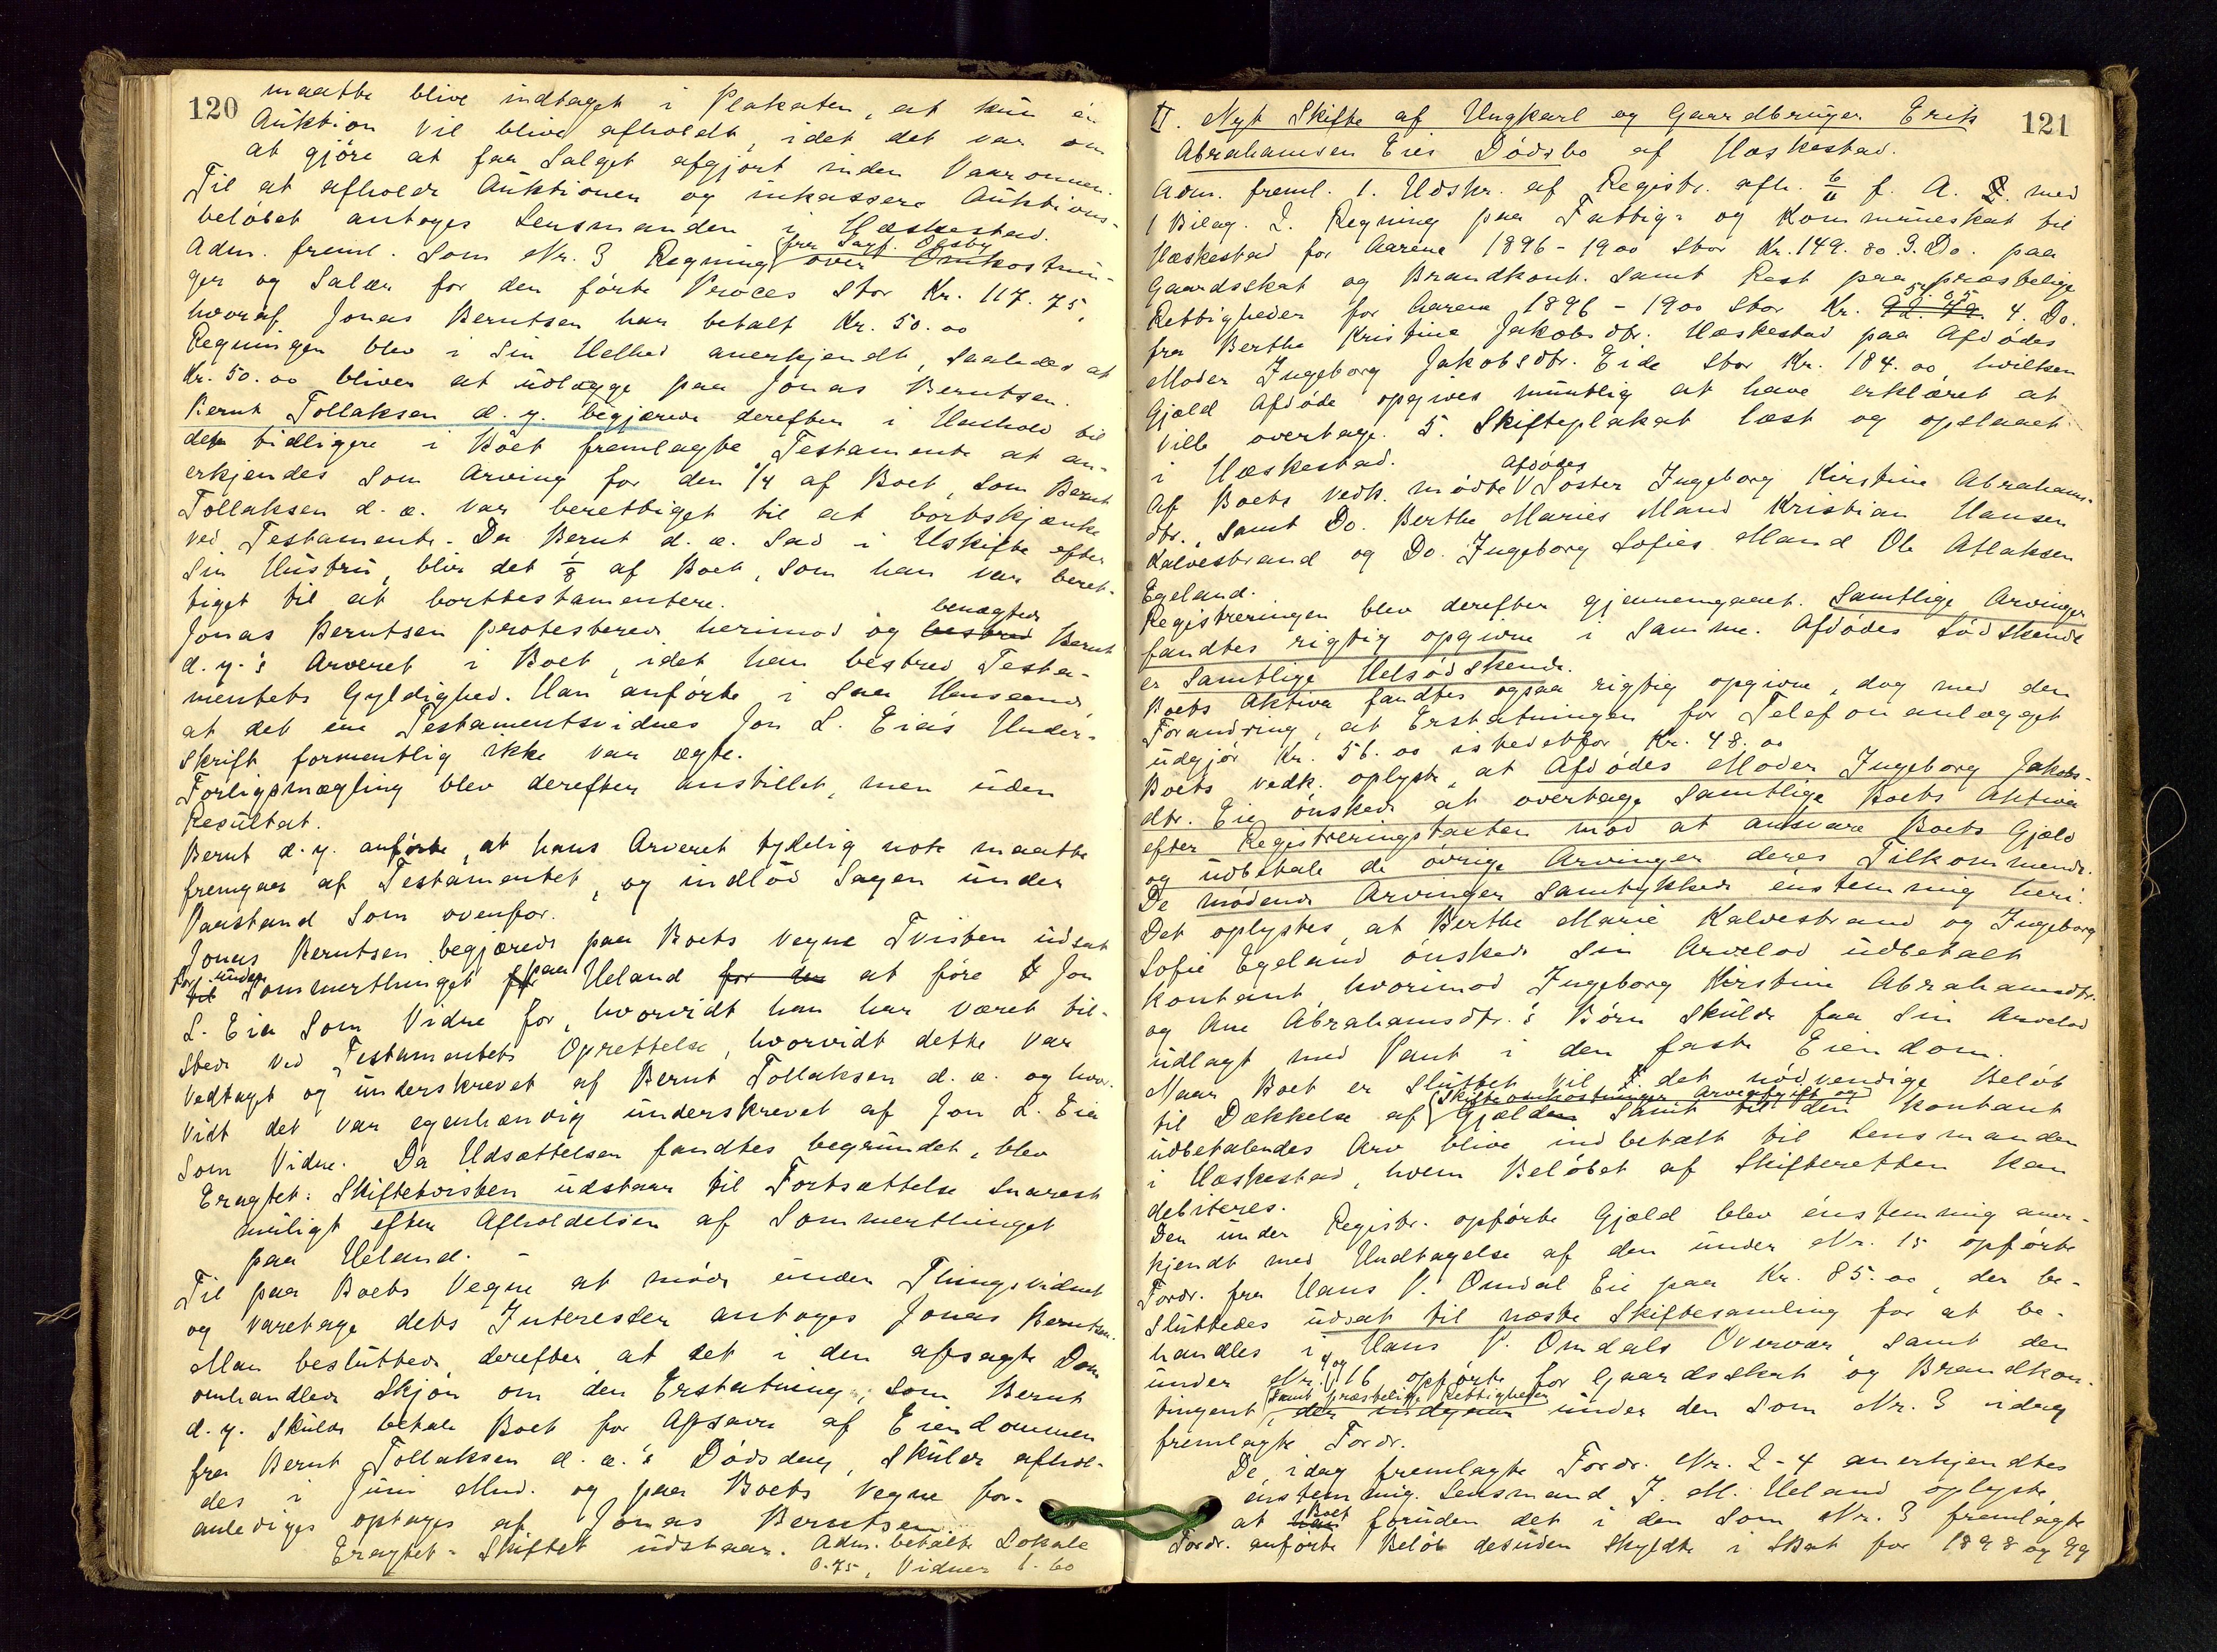 120
maatte blive indtaget i Plakaten, at kun én
Auktion vil blive afholdt, idet det var om
at gjöre at faa Salget afgjort inden Vaaronnen.
Til at afholde Auktionen og inkassere Auktions-
belöbet antoges Lensmanden i Hæskestad.
Adm. freml. som Nr. 3 Regning fra Sagf. Øgsby over Omkostnin-
ger og Salær for den förte Proces stor Kr. 117.75,
hvoraf Jonas Berntsen har betalt Kr. 50.00
Regningen blev i sin Helhed anerkjendt, saaledes at
Kr. 50.00 bliver at udlægge paa Jonas Berntsen.
Bernt Tollaksen d. y. begjærede derefter i Henhold til
det tidligere i Boet fremlagte Testamente at an-
erkjendes som Arving for den 1/4 af Boet, som Bernt
Tollaksen d. æ. var berettiget til at bortskjænke
ved Testamente. Da Bernt d. æ. sad i Uskifte efter
sin Hustru, blir det 1/8 af Boet, som han var beret-
tiget til at borttestamentere.
Jonas Berntsen protesterede herimod og bestred benægtede Bernt
d. y.'s Arveret i Boet, idet han bestred Testa-
mentets Gyldighed. Han anförte i saa Henseende
at det ene Testamentsvidnes Jon L. Eias Under-
skrift formentlig ikke var ægte.
Forligsmægling blev derefter anstillet, men uden
Resultat.
Bernt d. y. anförte, at hans Arveret tydelig nok maatte
fremgaa af Testamentet, og indlod Sagen under
Paastand som ovenfor.
Jonas Berntsen begjærede paa Boets Vegne Tvisten udsat
til for under Sommerthinget for paa Ueland for at före Jon
L. Eia som Vidne for, hvorvidt han har været til-
stede ved Testamentets Oprettelse, hvorvidt dette var
vedtaget og underskrevet af Bernt Tollaksen d. æ. og hvor-
vidt det var egenhændig underskrevet af Jon L. Eia
som Vidne. Da Udsættelsen fandtes begrundet, blev
Eragtet: Skiftetvisten udstaar til Fortsættelse snarest
muligt efter Afholdelsen af Sommerthinget
paa Ueland.
Til paa Boets Vegne at möde under Thingsvidnet
og varetage dets Interesser antoges Jonas Berntsen.
Man besluttede derefter at det i den afsagte Dom
omhandlede Skjön om den Erstatning, som Bernt
d. y. skulde betale Boet for Afsavn af Eiendommen
fra Bernt Tollaksen d. æ.'s Dödsdag, skulde afhol-
des i Juni Mnd. og paa Boets Vegne for-
anlediges optages af Jonas Berntsen.
Eragtet: Skiftet udstaar. Adm. betalte Lokale
0.75, Vidner 1.60
121
II. Nyt Skifte af Ungkarl og Gaardbruger Erik
Abrahamsen Eies Dödsbo af Hæskestad.
Adm. freml. 1. Udskr. af Registr. afh. 6/11 f. A. med
1 Bilag. 2. Regning paa Fattig- og Kommuneskat til
Hæskestad for Aarene 1896-1900 stor Kr. 149.80 3. Do. paa
Gaardsskat og Brandkont. samt Rest paa præstelige
Rettigheder for Aarene 1896-1900 stor Kr. 4. Do.
fra Berthe Kristine Jakobsdtr. Hæskestad paa Afdödes
Moder Ingeborg Jakobsdtr. Eide stor Kr. 184.00, hvilken
Gjæld Afdöde opgives mundtlig at have erklæret at
ville overtage. 5. Skifteplakat læst og opslaaet
i Hæskestad.
Af Boets Vedk. mödte Afdödes Söster Ingeborg Kirstine Abrahams-
dtr., samt Do. Berthe Maries Mand Kristian Hansen
Kalvestrand og Do. Ingeborg Sofies Mand Ole Atlaksen
Egeland.
Registreringen blev derefter gjennemgaaet. Samtlige Arvinger
fandtes rigtig opgivne i samme. Afdödes Södskende
er samtlige Helsödskende.
Boets Aktiva fandtes ogsaa rigtig opgivne, dog med den
Forandring, at Erstatningen for Telefonanlægget
udgjör Kr. 56.00 istedetfor Kr. 48.00
Boets Vedk. oplyste, at Afdödes Moder Ingeborg Jakobs-
dtr. Eie önskede at overtage samtlige Boets Aktiva
efter Registreringstaxten mod at ansvare Boets Gjæld
og udbetale de övrige Arvinger deres Tilkommende.
De mödende Arvinger samtykkede énstemmig heri.
Det oplystes, at Berthe Marie Kalvestrand og Ingeborg
Sofie Egeland önskede sin Arvelod udbetalt
kontant, hvorimod Ingeborg Kirstine Abrahamsdtr.
og Ane Abrahamsdtr.'s Börn skulde faa sin Arvelod
udlagt med Pant i den faste Eiendom.
Naar Boet er sluttet vil det nödvendige Belöb
til Dækkelse af Skifteomkostninger Arveafgift og Gjælden samt til den kontant
udbetalendes Arv blive indbetalt til Lensmanden
i Hæskestad, hvem Belöbet af Skifteretten kan
debiteres.
Den under Registr. opförte Gjæld blev énstemmig aner-
kjendt med Undtagelse af den under Nr. 15 opförte
Fordr. fra Hans P. Omdal Eie paa Kr. 85.00, der be-
sluttedes udsat til næste Skiftesamling for at be-
handles i Hans P. Omdals Overvær, samt den
under Nr. 4 og 16 opförte for Gaardsskat og Brandkon-
tingent samt præstelige Rettigheder, der indgaar under den som Nr. 3 idag
fremlagte Fordr.
De idag fremlagte Fordr. Nr. 2-4 anerkjendtes
énstemmig. Lensmand J. M. Ueland oplyste
at han Boet foruden det i den som Nr. 3 fremlagte
Fordr. anförte Belöb desuden skyldte i Skat for 1898 og 99